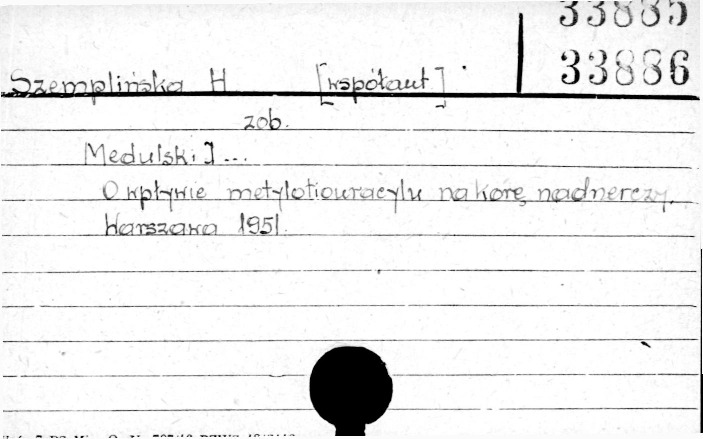 33885
33886
Szemplińska H [współaut].
zob.
Medulski J...
O wpływie metylotiouracylu na korę nadnerczy.
Warszawa 1951.